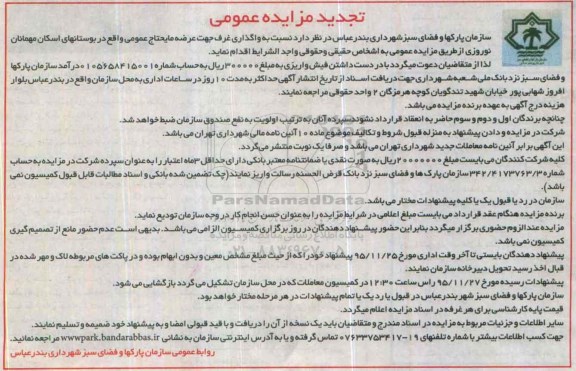 تجدید مزایده عمومی
سازمان پارکها و فضای سبز شهرداری بندرعباس در نظر دارد نسبت به واگذاری غرف جهت عرضه مایحتاج عمومی واقع در بوستانهای اسکان مهمانان
نوروزی از طریق مزایده عمومی به اشخاص حقیقی وحقوقی واجد الشرایط اقدام نماید.
لذا از متقاضیان دعوت میگردد با در دست داشتن فیش واریزی به مبلغ ۳۰۰۰۰۰ ریال به حساب شماره ۱۰۵۶۵۸۴۱۵۰۰۱ درآمد سازمان پارکها
و فضای سبز نزد بانک ملی شعبه شهرداری جهت دریافت اسناد از تاریخ انتشار آگهی حداکثر به مدت ۱۰ روز در ساعات اداری به محل سازمان واقع در بندرعباس بلوار
امروز شهابی پور خیابان شهید تندگویان کوچه هرمزگان ۲ واحد حقوقی مراجعه نمایند.
هزینه درج آگهی به عهده برنده مزایده می باشد.
چنانچه برندگان اول و دوم و سوم حاضر به انعقاد قرارداد نشوند سپرده آنان به ترتیب اولویت به نفع صندوق سازمان ضبط خواهد شد.
شرکت در مزایده و دادن پیشنهاد به منزله قبول شروط و تکالیف موضوع ماده ۱۰ آئین نامه مالی شهرداری تهران می باشد.
این آگهی برابر آئین نامه معاملات جدید شهرداری تهران می باشد و صرفا یک نوبت منتشر می گردد.
کلیه شرکت کنندگان می بایست مبلغ ۲۰۰۰۰۰۰۰ ریال به صورت نقدی یا ضمانتنامه معتبر بانکی دارای حداقل ۳ ماه اعتبار را به عنوان سپرده شرکت در مزایده به حساب
شماره ۳۴۲/۴۱۷۳۷۶۳/۳ سازمان پارک ها و فضای سبز نزد بانک قرض الحسنه رسالت واریز نمایند(چک تضمین شده بانکی و اسناد مطالبات قابل قبول کمیسیون نمی
باشد).
سازمان در رد یا قبول یک یا کلیه پیشنهادات مختار می باشد.
برنده مزایده هنگام عقد قرارداد می بایست مبلغ اعلامی در شرایط مزایده را به عنوان حسن انجام کار در وجه سازمان تودیع نماید.
مزایده عندالزوم حضوری برگزار میگردد بنابر این حضور پیشنهاد دهندگان در روز برگزاری کمیسیون الزامی می باشد. بدیهی است عدم حضور مانع از تصمیم گیری
کمیسیون نمی باشد.
پیشنهاد دهندگان بایستی تا آخر وقت اداری مورخ ۹۵/۱۱/۲۵ پیشنهاد خود را که از حیث مبلغ مشخص معین و بدون ابهام بوده و در پاکت های مربوطه لاک و مهر شده در
قبال اخذ رسید تحویل دبیرخانه سازمان نمایند.
پیشنهادات رسیده مورخ ۹۵/۱۱/۲۷ راس ساعت ۱۲:۳۰ در کمیسیون معاملات که در محل سازمان تشکیل می گردد بازگشایی می شود.
سازمان پارکها و فضای سبز شهر بندرعباس در قبول یا رد یک یا تمام پیشنهادات در هر مرحله مختار خواهد بود.
قیمت پایه کارشناسی برای هر غرفه در اسناد مزایده اعلام میگردد.
سایر اطلاعات و جزئیات مربوط به مزایده در اسناد مندرج و متقاضیان باید یک نسخه از آن را دریافت و با قید قبولی امضاء و به پیشنهاد خود ضمیمه و تسلیم نمایند.
جهت کسب اطلاعات بیشتر با شماره تلفنهای ۱۹-۰۷۶۳۳۷۵۳۴۱۷ تماس گرفته و یا به آدرس اینترنتی سازمان به نشانی wwwpark.bandarabbas.ir مراجعه نمائید.
روابط عمومی سازمان پارکها و فضای سبز شهرداری بندرعباس
ParsNamadData
۰۲۱-۸۸۳۴۹۶۷۰-۵